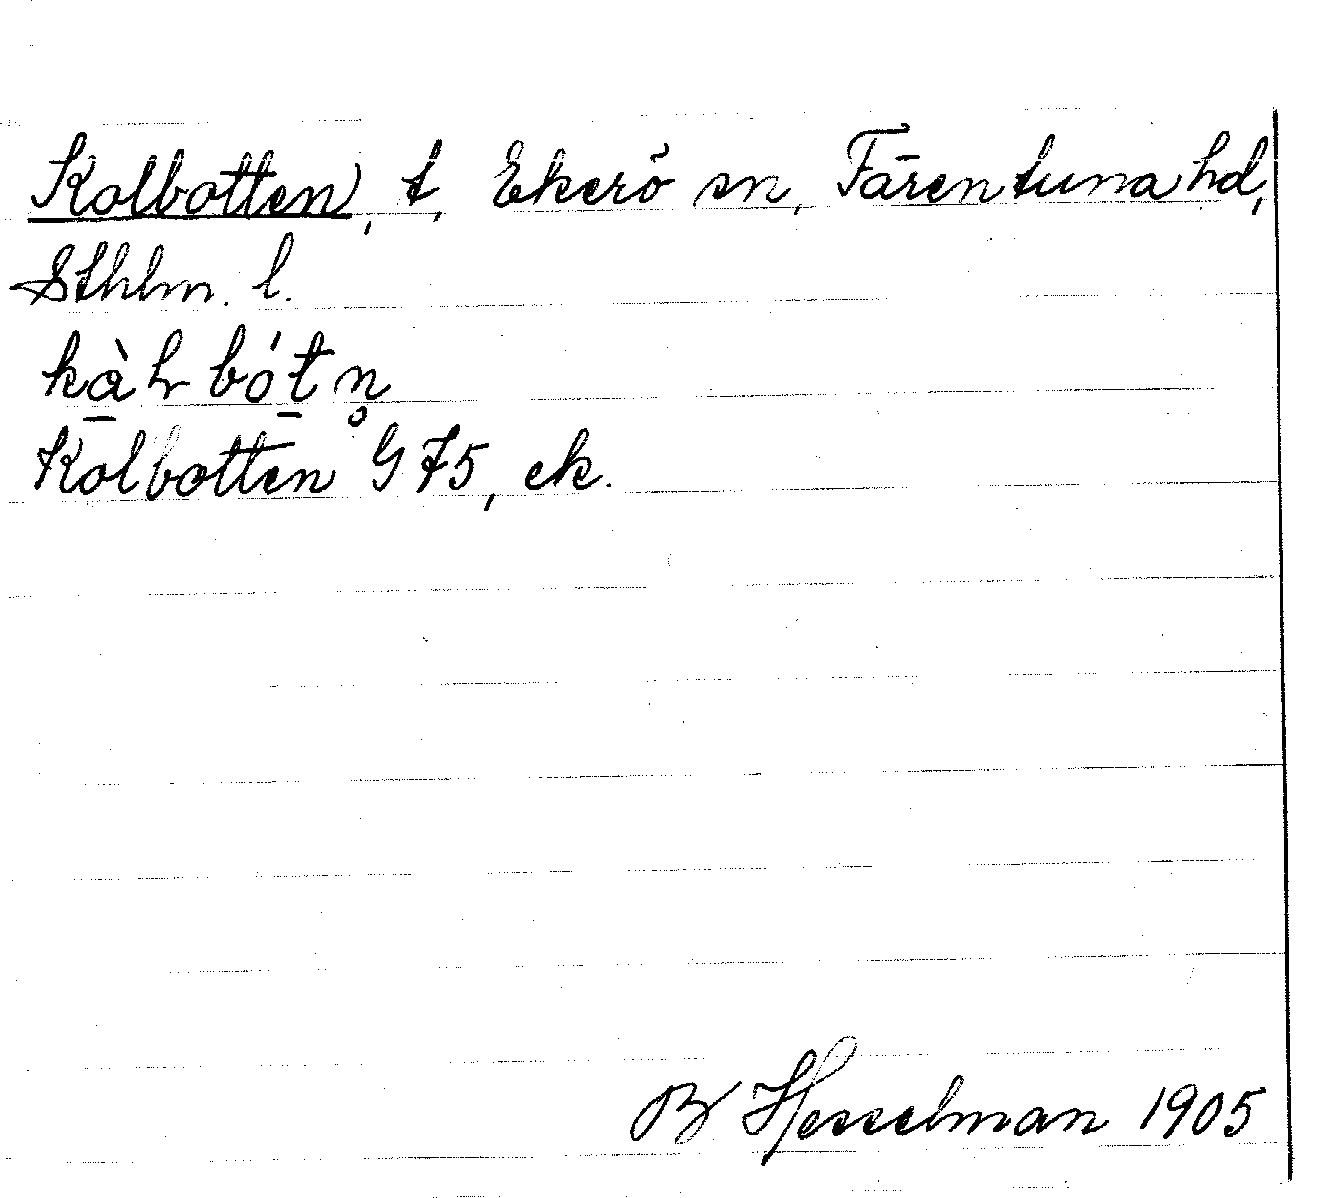 Kolbotten, t, Ekerö sn, Färentuna hd,
Sthlm. l.
kàlbótn̥
Kolbotten G 75, ek.
B Hesselman 1905